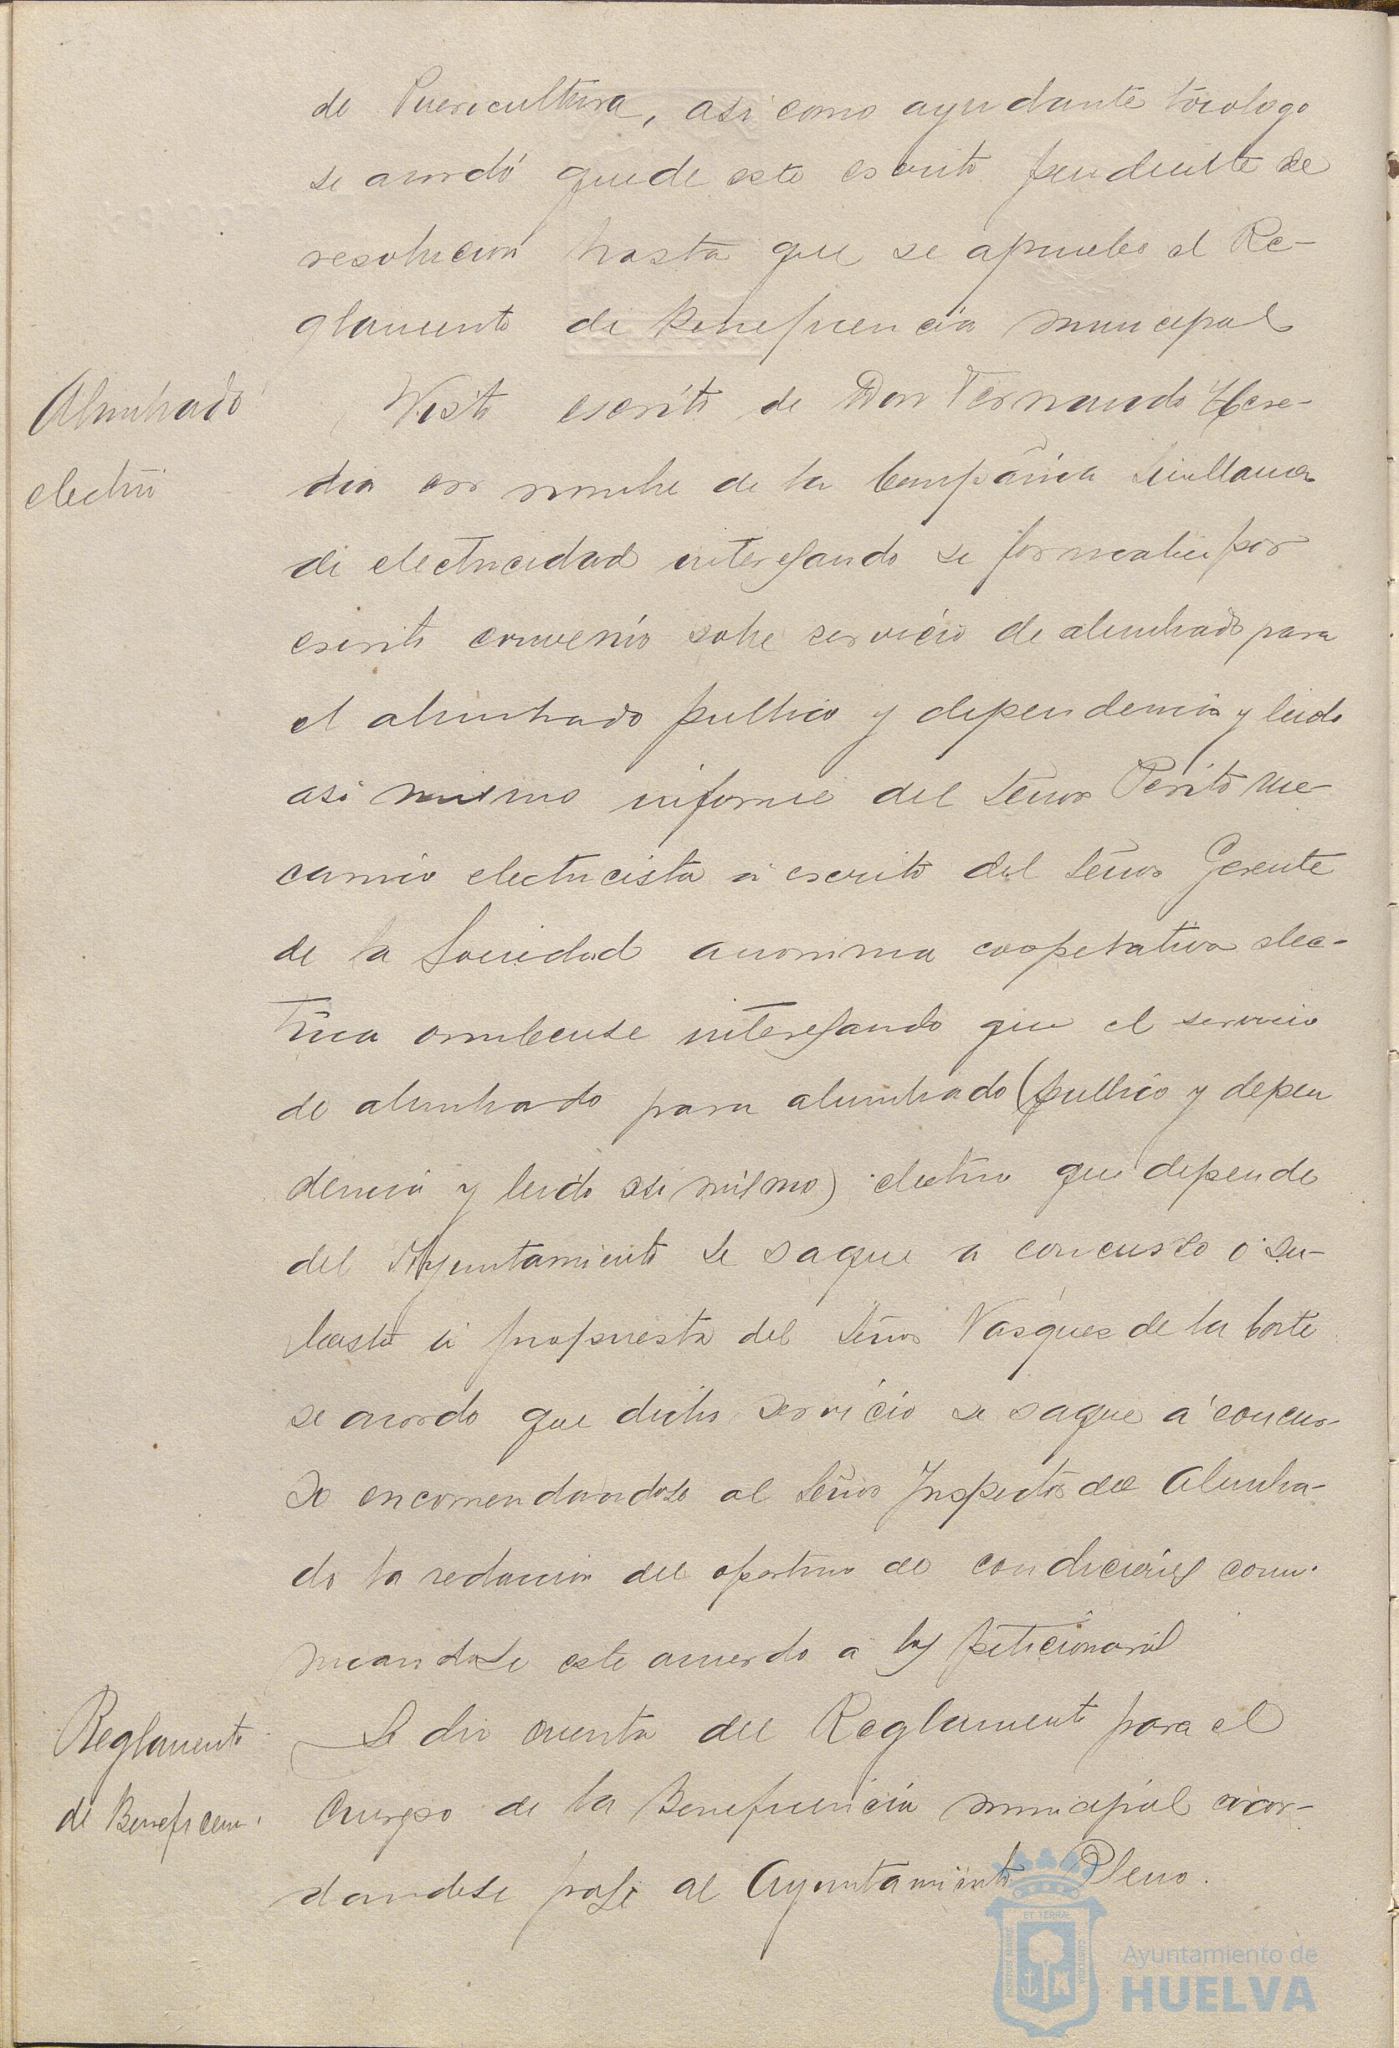 de Puericultura, asi como ayudante tocologo
se acordó quede este escrito pendiente de
resolucion hasta que se apruebe el Re-
glamento de Beneficencia municipal
Alumbrado
electri
Visto escrito de Don Fernando Here-
dia en nombre de la Compañia Sevillana
de electricidad interesando se formalice por
escrito convenio sobre servicio de alumbrado para
el alumbrado publico y dependencia y leido
asi mismo informe del Señor Perito Me-
canico electricista a escrito del Señor Gerente
de la Sociedad anonima cooperativa elec-
trica onubense interesando que el servicio
de alumbrado para alumbrado (publico y depen
dencia y leido asi mismo) electrico que depende
del Ayuntamiento se saque a concurso o su-
basta a propuesta del Señor Vasques de la Corte
se acordo que dicho servicio se saque a concur-
so encomendandose al Señor Inspector del Alumbra-
do la redaccion del oportuno de condiciones comu-
nicandose este acuerdo a los peticionarios
Reglamento
de Beneficen.
Se dio cuenta del Reglamento para el
Cuerpo de la Beneficencia municipal acor-
dandose pase al Ayuntamiento Pleno.
Ayuntamiento de
HUELVA